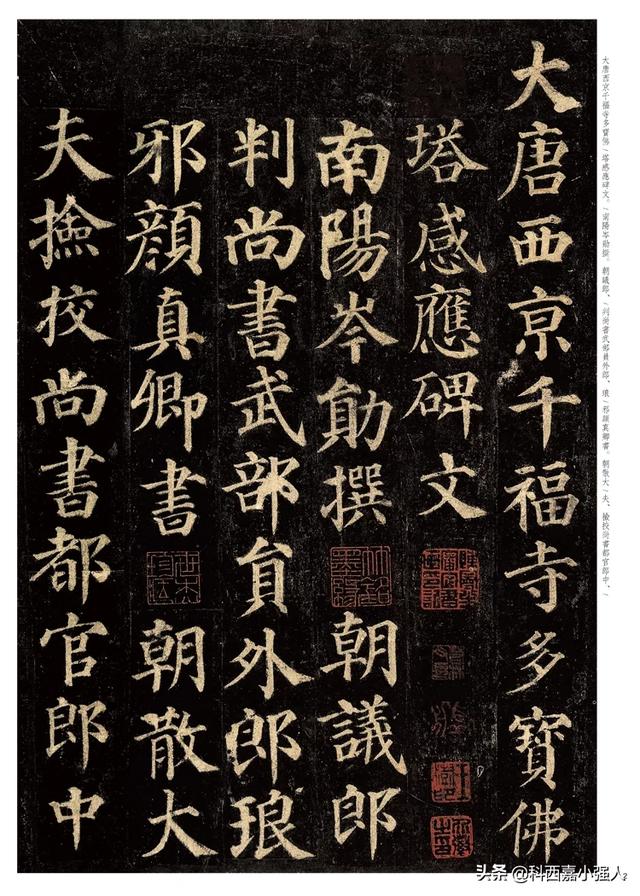 大唐西京千福寺多寶佛
塔感應碑文
南陽岑勛撰 朝議郎
判尚書武部員外郎琅
邪顏真卿書 朝散大
夫撿挍尚書都官郎中
大唐西京千福寺多寶佛/塔感應碑文。/南陽岑勛撰。朝議郎、/判尚書武部員外郎、琅/邪顏真卿書。朝散大/夫、撿挍尚書都官郎中、/
头条 @科西嘉小强人
2